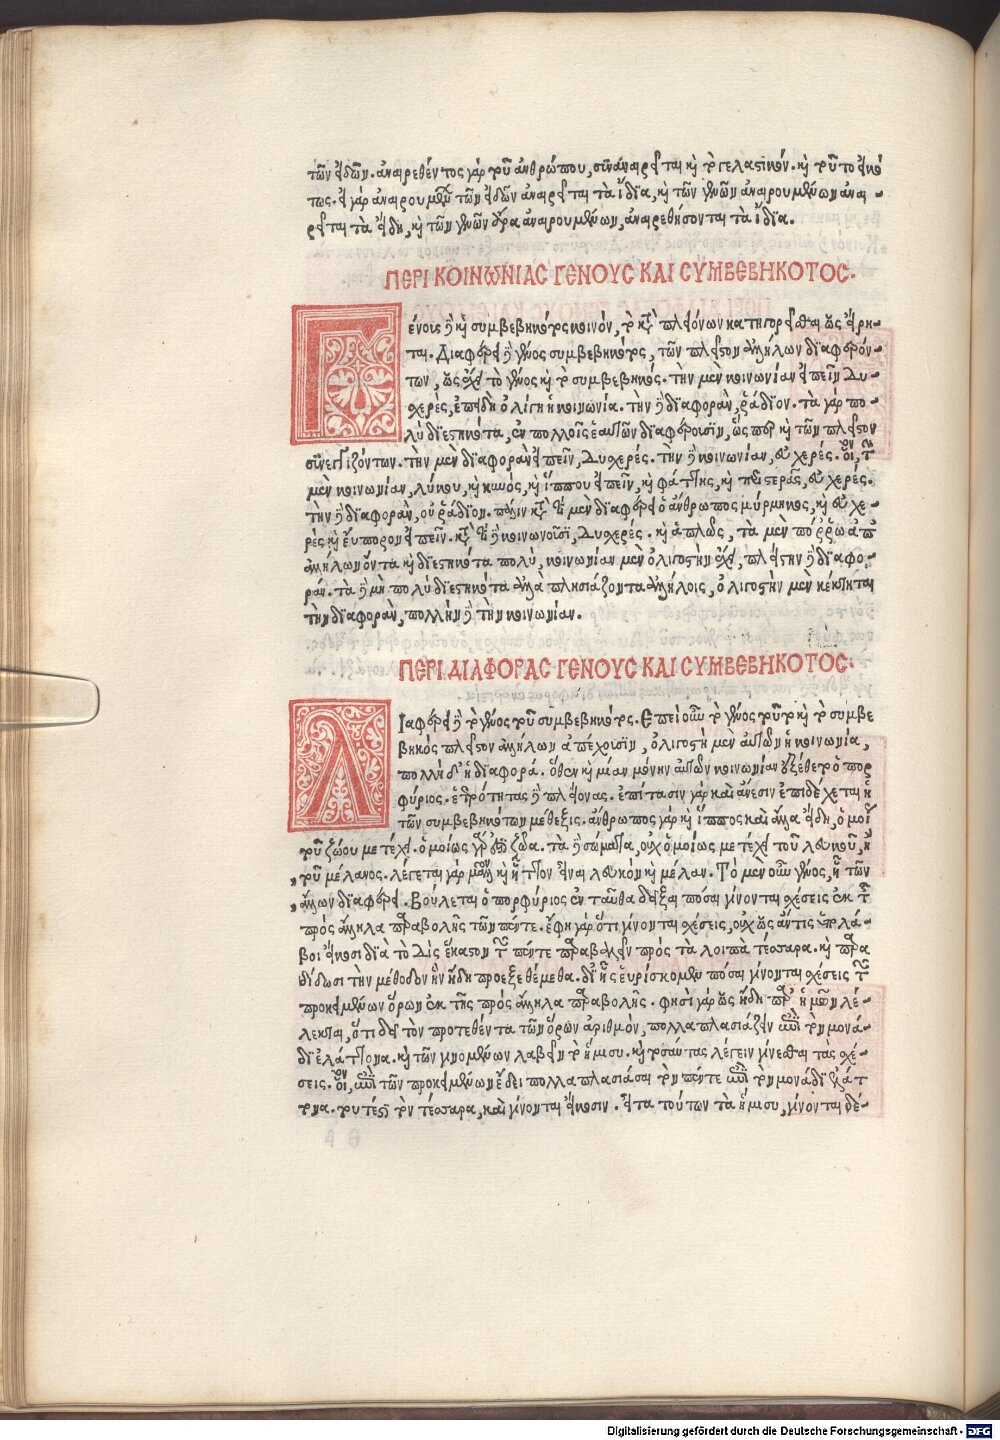 τῶν εἰδῶν. ἀναιρεθέντος γὰρ τοῦ ἀνθρώπου, συναναιρεῖται καὶ τὸ γελαστικόν. καὶ τοῦτο εἰκό
τως. εἰ γὰρ ἀναιρουμένων τῶν εἰδῶν ἀναιρεῖται τὰ ἴδια, καὶ τῶν γενῶν ἀναιρουμένων ἀναι-
ρεῖται τὰ εἴδη, καὶ τῶν γενῶν ἄρα ἀναιρουμένων, ἀναιρεθήσονται τὰ ἴδια.
ΠΕΡΙ ΚΟΙΝΩΝΙΑΣ ΓΕΝΟΥΣ ΚΑΙ ΣΥΜΒΕΒΗΚΟΤΟΣ.
Γένους δὲ καὶ συμβεβηκότος κοινὸν, τὸ κατὰ πλειόνων κατηγορεῖσθαι ὡς εἴρη-
ται. Διαφέρει δὲ γένος συμβεβηκότος, τῶν πλεῖστον ἀλλήλων διαφερόν-
των, ὡς ἔχει τὸ γένος καὶ τὸ συμβεβηκός. τὴν μὲν κοινωνίαν εἰπεῖν Δυ-
χερὲς, ἐπειδὴ ὀλίγη ἡ κοινωνία. τὴν δὲ διαφορὰν, ῥάδιον. τὰ γὰρ πο-
λὺ διεστηκότα, ἐν πολλοῖς ἑαυτῶν διαφέρουσιν, ὥσπερ καὶ τῶν πλεῖστον
συνεγγιζόντων. τὴν μὲν διαφορὰν εἰπεῖν, Δυχερές. τὴν δὲ κοινωνίαν, εὐχερές. οἷον, τὴν
μὲν κοινωνίαν, λύκου, καὶ κυνὸς, καὶ ἵππου εἰπεῖν, καὶ φάττης, καὶ περιστερᾶς, εὐχερές.
τὴν δὲ διαφορὰν, οὐ ῥάδιον. πάλιν κατὰ τί μὲν διαφέρει ὁ ἄνθρωπος μύρμηκος, καὶ εὐχε-
ρὲς καὶ εὔπορον εἰπεῖν. κατὰ τί δὲ κοινωνοῦσι, Δυχερές. καὶ ἁπλῶς, τὰ μὲν πόῤῥω ἀπ᾽
ἀλλήλων ὄντα καὶ διεστηκότα πολὺ, κοινωνίαν μὲν ὀλιγοστὴν ἔχει, πλείστην δὲ διαφο-
ράν. τὰ δὲ μὴ πολὺ διεστηκότα ἀλλὰ πλησιάζοντα ἀλλήλοις, ὀλιγοστὴν μὲν κέκτηται
τὴν διαφορὰν, πολλὴν δὲ τὴν κοινωνίαν.
ΠΕΡΙ ΔΙΑΦΟΡΑΣ ΓΕΝΟΥΣ ΚΑΙ ΣΥΜΒΕΒΗΚΟΤΟΣ.
Διαφέρει δὲ τὸ γένος τοῦ συμβεβηκότος. Ἐπεὶ οὖν τὸ γένος τοῦτο καὶ τὸ συμβε
βηκὸς πλεῖστον ἀλλήλων ἀπέχουσιν, ὀλιγοστὴ μὲν αὐτῶν ἡ κοινωνία,
πολλὴ δ᾽ ἡ διαφορά. ὅθεν καὶ μίαν μόνην αὐτῶν κοινωνίαν ἐξέθετο ὁ πορ
φύριος. ἑτερότητας δὲ πλείονας. ἐπίτασιν γὰρ καὶ ἄνεσιν ἐπιδέχεται ἡ
τῶν συμβεβηκότων μέθεξις. ἄνθρωπος γὰρ καὶ ἵππος καὶ ἄλλα εἴδη, ὁμοί
τοῦ ζώου μετέχει. ὁμοίως γὰρ ζῶα. τὰ δὲ σώματα, οὐχ ὁμοίως μετέχει τοῦ λευκοῦ, ἢ
τοῦ μέλανος. λέγεται γὰρ μᾶλλον καὶ ἧττον εἶναι λευκὸν καὶ μέλαν. Τὸ μὲν οὖν γένος, ᾗ τῶν
ἄλλων διαφέρει. Βούλεται ὁ πορφύριος ἐνταῦθα δεῖξαι πόσαι γίνονται σχέσεις ἐκ τῆς
πρὸς ἄλληλα παραβολῆς τῶν πέντε. ἔφη γὰρ ὅτι γίνονται σχέσεις, οὐχ ὡς ἄν τις ὑπολά-
βοι εἴκοσι διὰ τὸ Δὶς ἕκαστον τῶν πέντε παραβαλεῖν πρὸς τὰ λοιπὰ τέσσαρα. καὶ παρα
δίδωσι τὴν μέθοδον ἣν ἤδη προεξεθέμεθα. δι᾽ ἧς εὑρίσκομεν πόσαι γίνονται σχέσεις τῶν
προκειμένων ὅρων ἐκ τῆς πρὸς ἄλληλα παραβολῆς. φησὶ γὰρ ὡς ἤδη παρ᾽ ἡμῶν λέ-
λεκται, ὅτι δεῖ τὸν προτεθέντα τῶν ὅρων ἀριθμὸν, πολλαπλασιάζειν ἐπὶ τὸν μονά-
δι ἐλάττονα. καὶ τῶν γινομένων λαβεῖν τὸ ἥμισυ. καὶ τοσαύτας λέγειν γίνεσθαι τὰς σχέ-
σεις. οἷον, ἐπὶ τῶν προκειμένων ἔδει πολλαπλασιάσαι τὸν πέντε ἐπὶ τὸν μονάδι ἐλάτ
τονα. τουτέστι τὸν τέσσαρα, καὶ γίνονται εἴκοσιν. εἶτα τούτων τὰ ἥμισυ, γίνονται δέ-
Digitalisierung gefördert durch die Deutsche Forschungsgemeinschaft - DFG